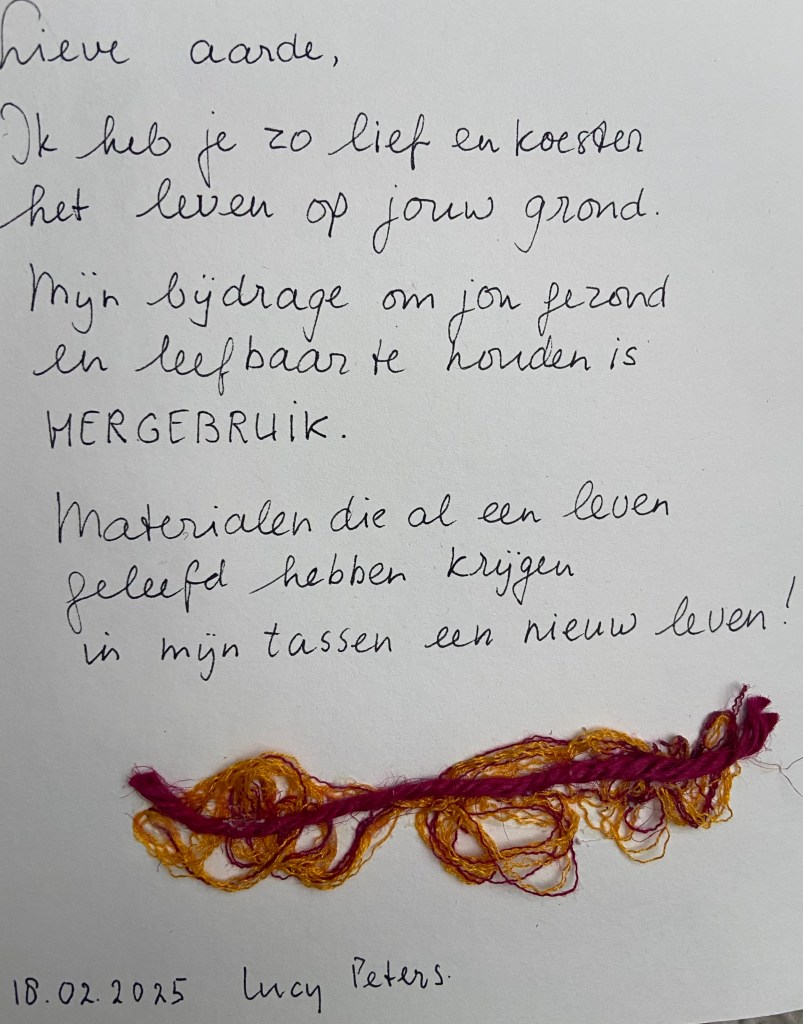 Lieve aarde,
Ik heb je zo lief en koester
het leven op jouw grond.
Mijn bijdrage om jou gezond
en leefbaar te houden is
HERGEBRUIK.
Materialen die al een leven
geleefd hebben krijgen
in mijn tassen een nieuw leven!
18.02.2025 Lucy Peters.